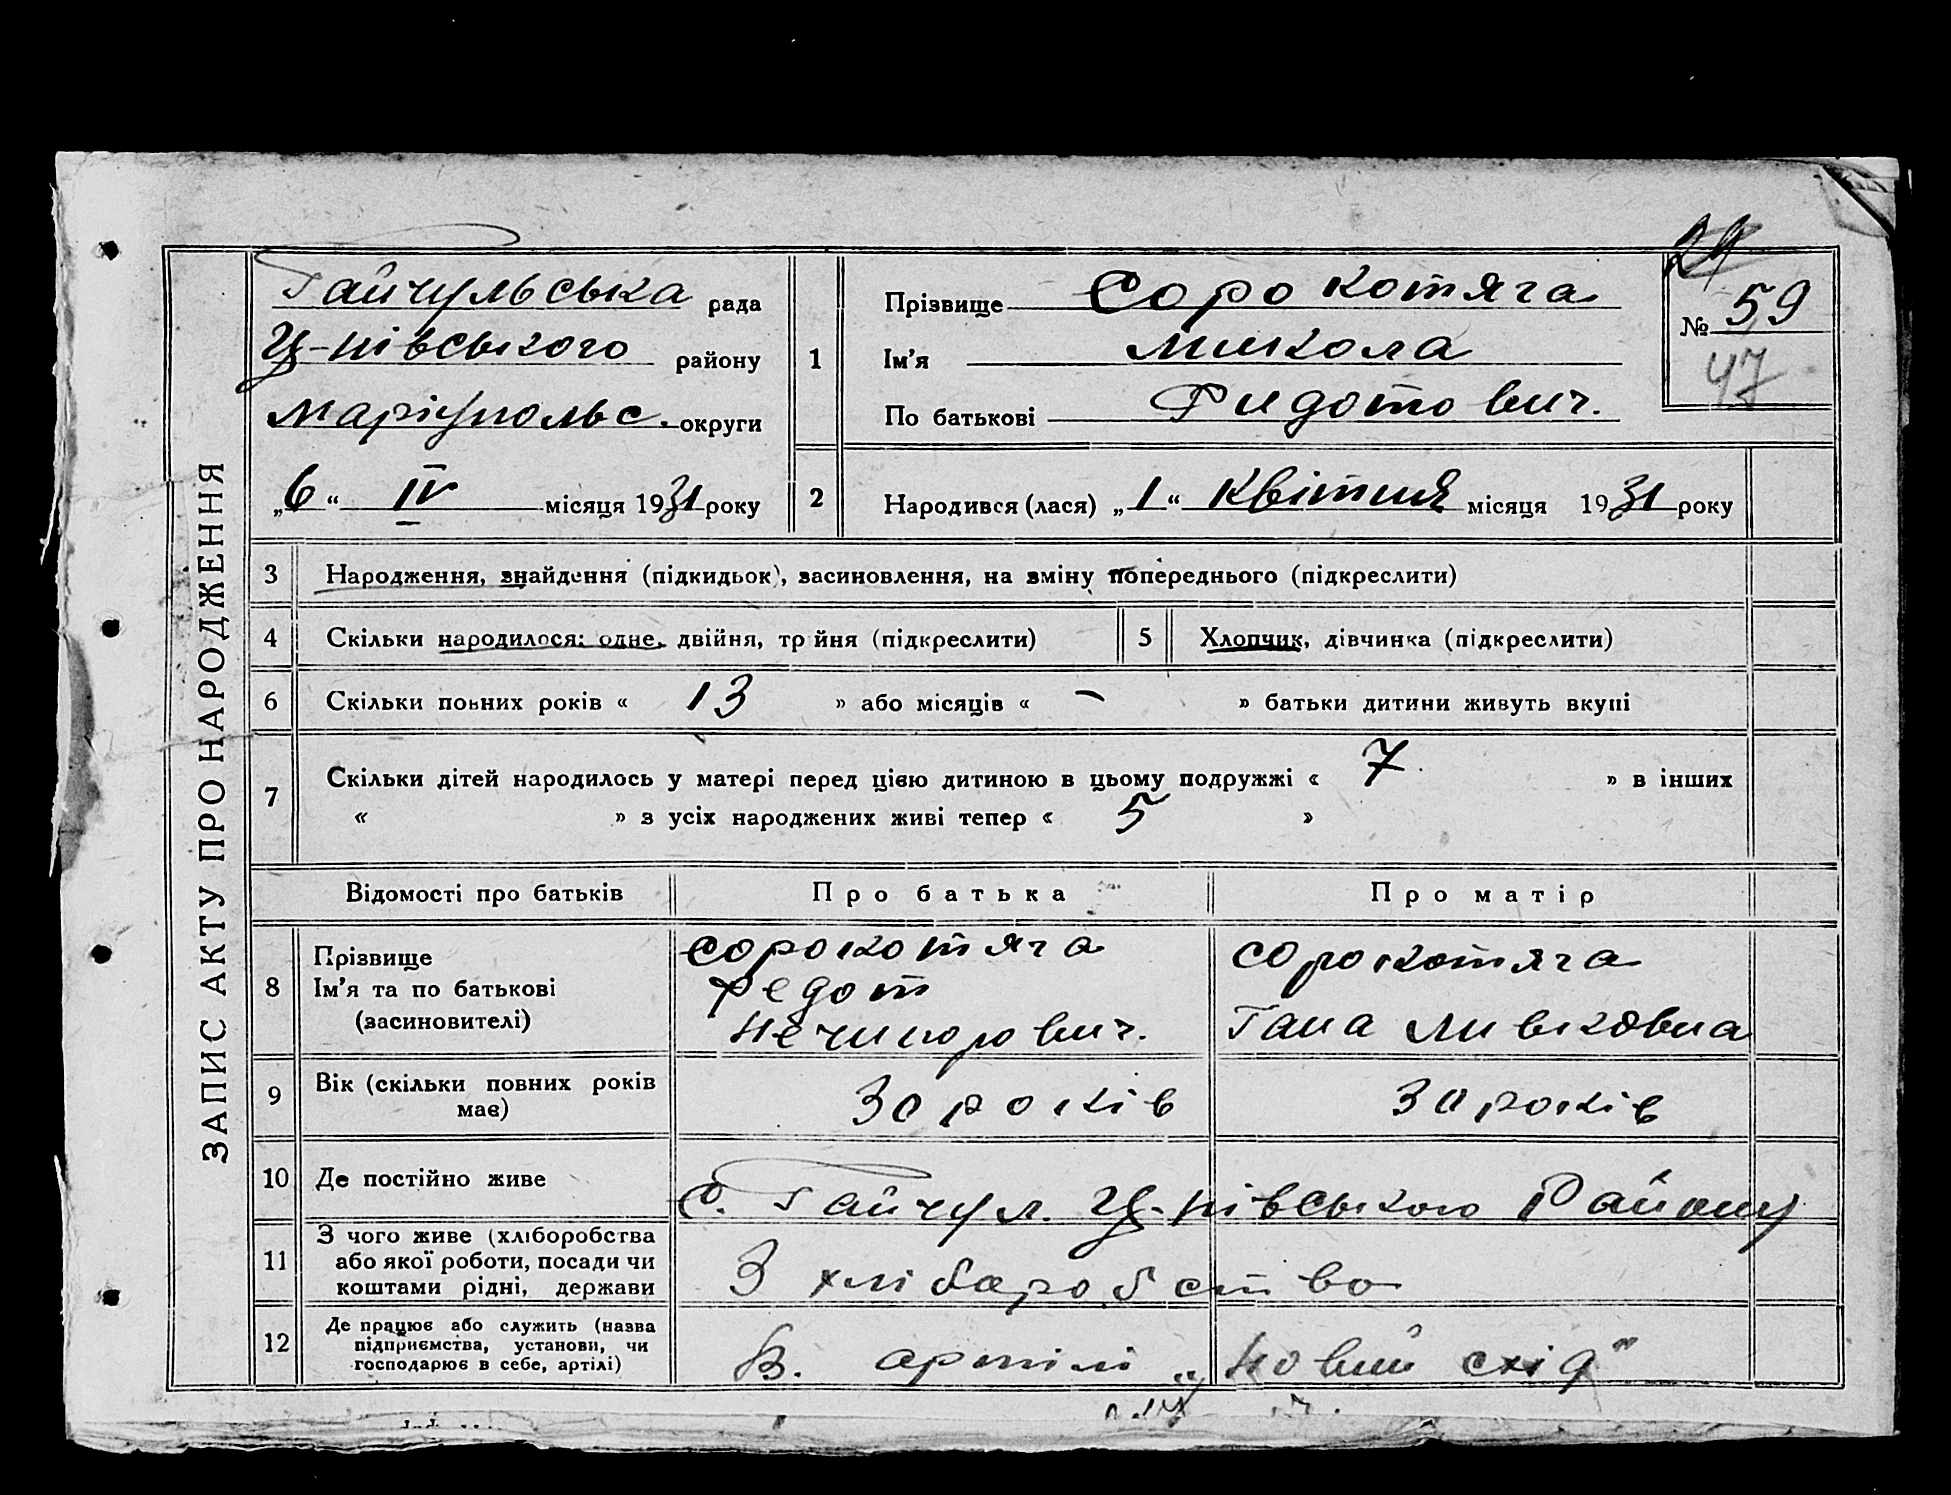 ЗАПИС АКТУ ПРО НАРОДЖЕННЯ
Гайчульська рада
Ц-нівського району
Маріупольс. округи
„6“ IV місяця 1931 року
1
Прізвище Сорокотяга
Ім'я Микола
По батькові Фидотович.
24
№ 59
47
2 Народився (лася) „1“ Квітня місяця 1931 року
3 Народження, знайдення (підкидьок), засиновлення, на зміну попереднього (підкреслити)
4 Скільки народилося: одне, двійня, тр йня (підкреслити)
5 Хлопчик, дівчинка (підкреслити)
6 Скільки повних років « 13 » або місяців « – » батьки дитини живуть вкупі
7 Скільки дітей народилось у матері перед цією дитиною в цьому подружжі « 7 » в інших
« » з усіх народжених живі тепер « 5 »
Відомості про батьків Про батька Про матір
8 Прізвище
Ім'я та по батькові
(засиновителі)
Сорокотяга
Федот
Нечипорович.
Сорокотяга
Гана Ливковна
9 Вік (скільки повних років
має)
30 років
30 років
10 Де постійно живе
С. Гайчул. Ц-нівського Району
11 З чого живе (хліборобства
або якої роботи, посади чи
коштами рідні, держави
З хлібаробство
12 Де працює або служить (назва
підприємства, установи, чи
господарює в себе, артілі)
В. артілі „Новий схід"